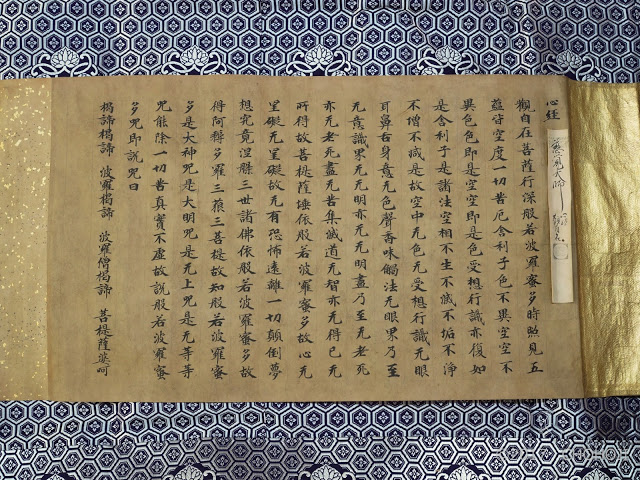 心経
大師
觀自在菩薩行深般若波羅蜜多時照見五
蘊皆空度一切苦厄舍利子色不異空空不
異色色即是空空即是色受想行識亦復如
是舍利子是諸法空相不生不滅不垢不淨
不增不減是故空中无色无受想行識无眼
耳鼻舌身意无色聲香味觸法无眼界乃至
无意識界无无明亦无无明盡乃至无老死
亦无老死盡无苦集滅道无智亦无得已无
所得故菩提薩埵依般若波羅蜜多故心无
罣礙无罣礙故无有恐怖遠離一切顛倒夢
想究竟涅槃三世諸佛依般若波羅蜜多故
得阿耨多羅三藐三菩提故知般若波羅蜜
多是大神咒是大明咒是无上咒是无等等
咒能除一切苦真實不虛故說般若波羅蜜
多咒即說咒曰
揭諦揭諦 波羅揭諦 波羅僧揭諦 菩提薩婆呵